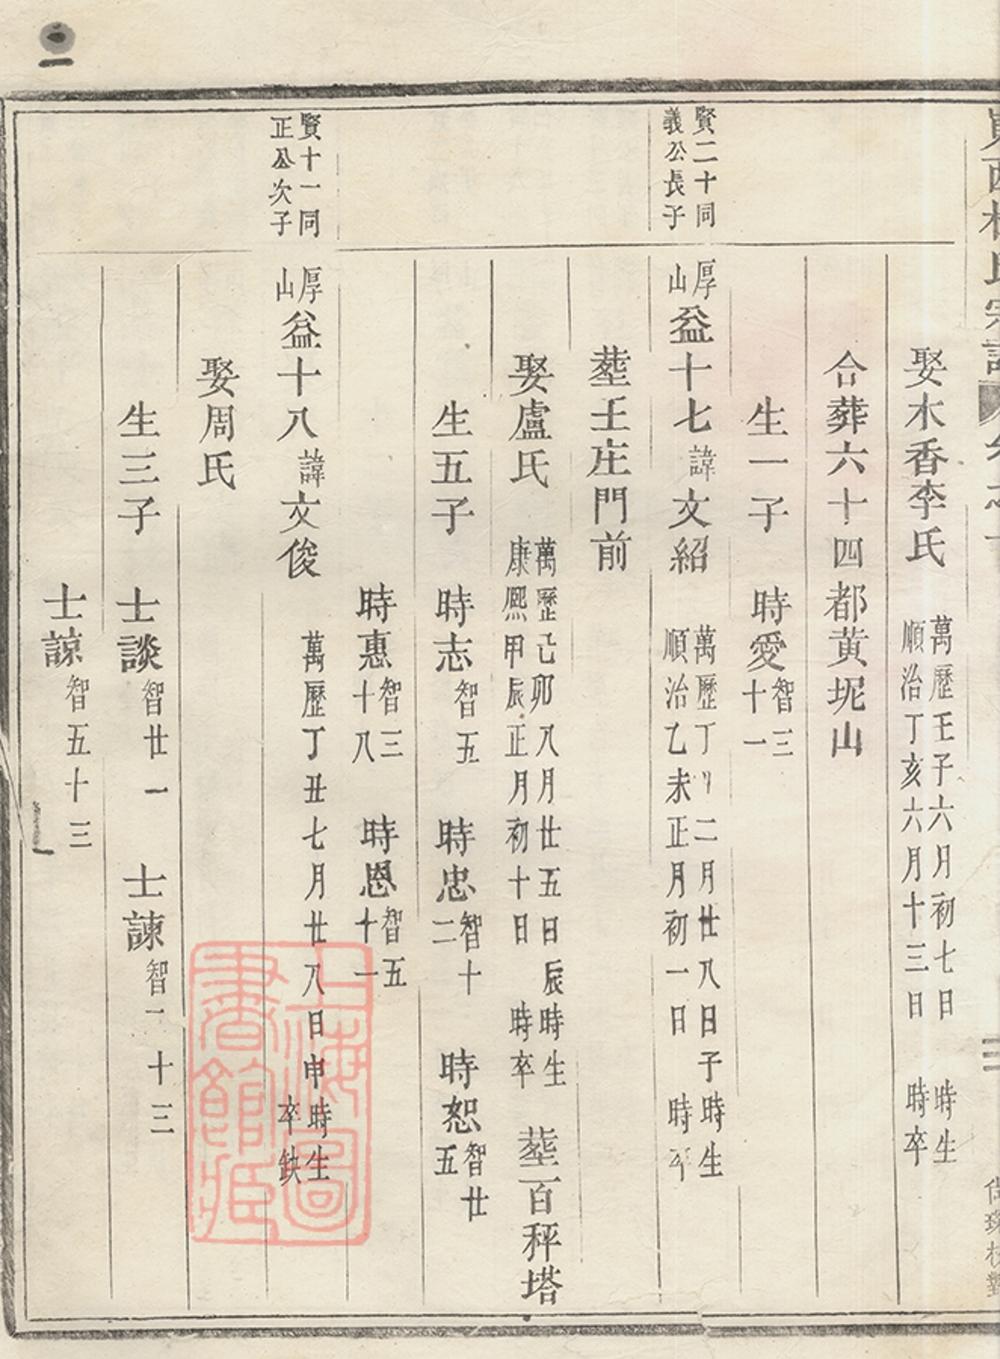 娶木香李氏 萬歷壬子六月初七日 時生
順治丁亥六月十三日 時卒
合葬六十四都黄坭山
生一子 時愛智三十一
賢二十同
義公長子
厚山益十七諱文紹 萬歷丁 二月廿八日子時生
順治乙未正月初一日 時卒
塟王庄門前
娶盧氏 萬歷己卯八月廿五日辰時生
康熙甲辰正月初十日 時卒 塟百秤塔
生五子 時志智五 時忠智十二 時恕智廿五
時惠智三十八 時恩智五十一
賢十一同
正公次子
厚山益十八諱文俊 萬歷丁丑七月廿八日申時生
卒缺
娶周氏
生三子 士談智廿一 士諫智 十三
士諒智五十三
上海圖
書館藏